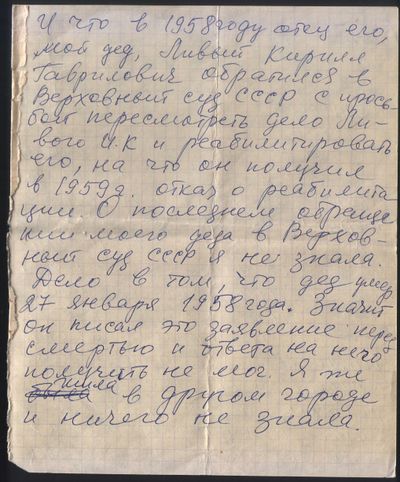 И что в 1958 году отец его,
мой дед, Ливый Кирилл
Гаврилович обратился в
Верховный суд СССР с прось
бой пересмотреть дело Ли-
вого И.К и реабилитировать
его, на что он получил
в 1959г. отказ о реабилита
ции. О последнем обраще
нии моего деда в Верхов-
ный суд СССР я не знала.
Дело в том, что дед умер
27 января 1958 года. Значит
он писал это заявление перед
смертью и ответа на него
получить не мог. Я же
жила в другом городе
и ничего не знала.